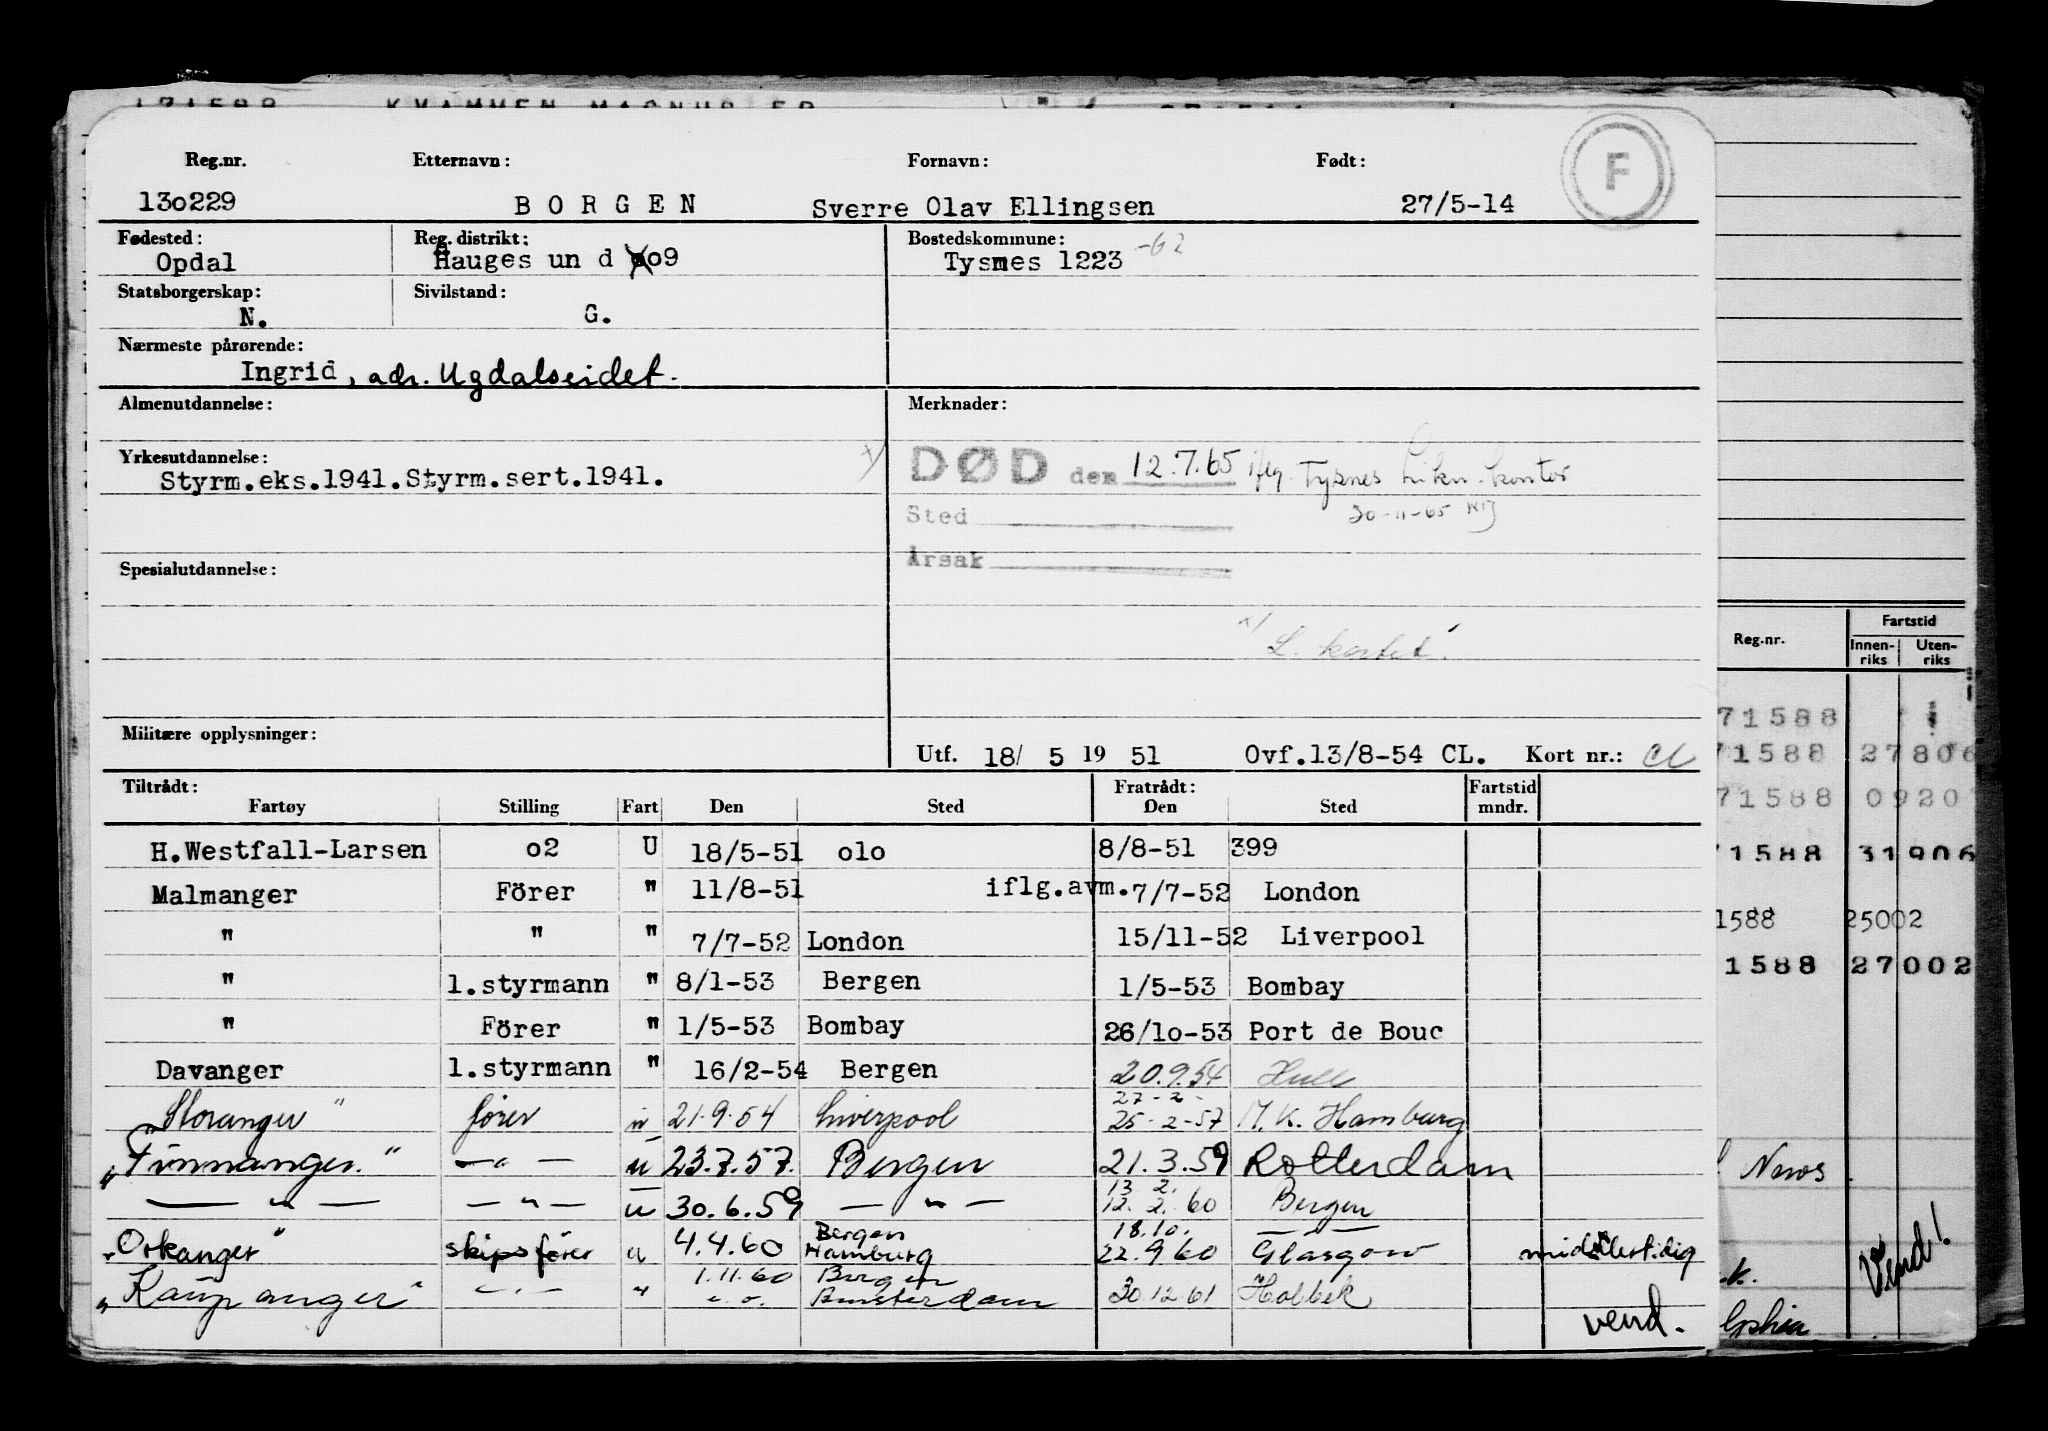 171588 KVAMMEN MAGNUS
F
Reg.nr. Etternavn: Fornavn: Født:
130229 BORGEN Sverre Olav Ellingsen 27/5-14
Fødested: Reg. distrikt: Bostedskommune: -62
Opdal Hauges un d 009 Tysnes 1223
Statsborgerskap: Sivilstand:
N. G.
Nærmeste pårørende:
Ingrid, adr. Uggdalseidet.
Almenutdannelse: Merknader:
Yrkesutdannelse: x) DØD den 12.7.65 iflg. Tysnes Likn. kontor
Styrm.eks.1941.Styrm.sert.1941.
Sted 30-11-65
Årsak
Spesialutdannelse:
x/ L. kortet!
Militære opplysninger:
Utf. 18/ 5 19 51 Ovf.13/8-54 CL. Kort nr.: CL
Tiltrådt: Fratrådt: Fartstid
Fartøy Stilling Fart Den Sted Den Sted mndr.
H.Westfall-Larsen o2 U 18/5-51 olo 8/8-51 399
Malmanger Förer " 11/8-51 iflg.avm. 7/7-52 London
" " " 7/7-52 London 15/11-52 Liverpool
" 1.styrmann " 8/1-53 Bergen 1/5-53 Bombay
" Förer " 1/5-53 Bombay 26/1o-53 Port de Bouc
Davanger 1.styrmann " 16/2-54 Bergen 20.9.54 Hull
27-2-
Storanger" fører u 21.9.54 Liverpool 25-2-57 M.K. Hamburg
"Finnanger." —"— u 23.7.57. Bergen 21.3.59 Rotterdam
13 2.
—"— —"— u 30.6.59 —"— 12.2.60 Bergen
Bergen 18.10. —"—
"Orkanger" skipsfører u 4.4.60 Hamburg 22.9.60 Glasgow midlertidig
1.11.60 Bergen
"Kaupanger" —"— " Amsterdam 30.12.61 Holbek
vend.
Reg.nr. Fartstid
Innen-riks Uten-riks
71588
71588 27806
71588 0920
71588 31906
1588 25002
1588 27002
News
Vend!